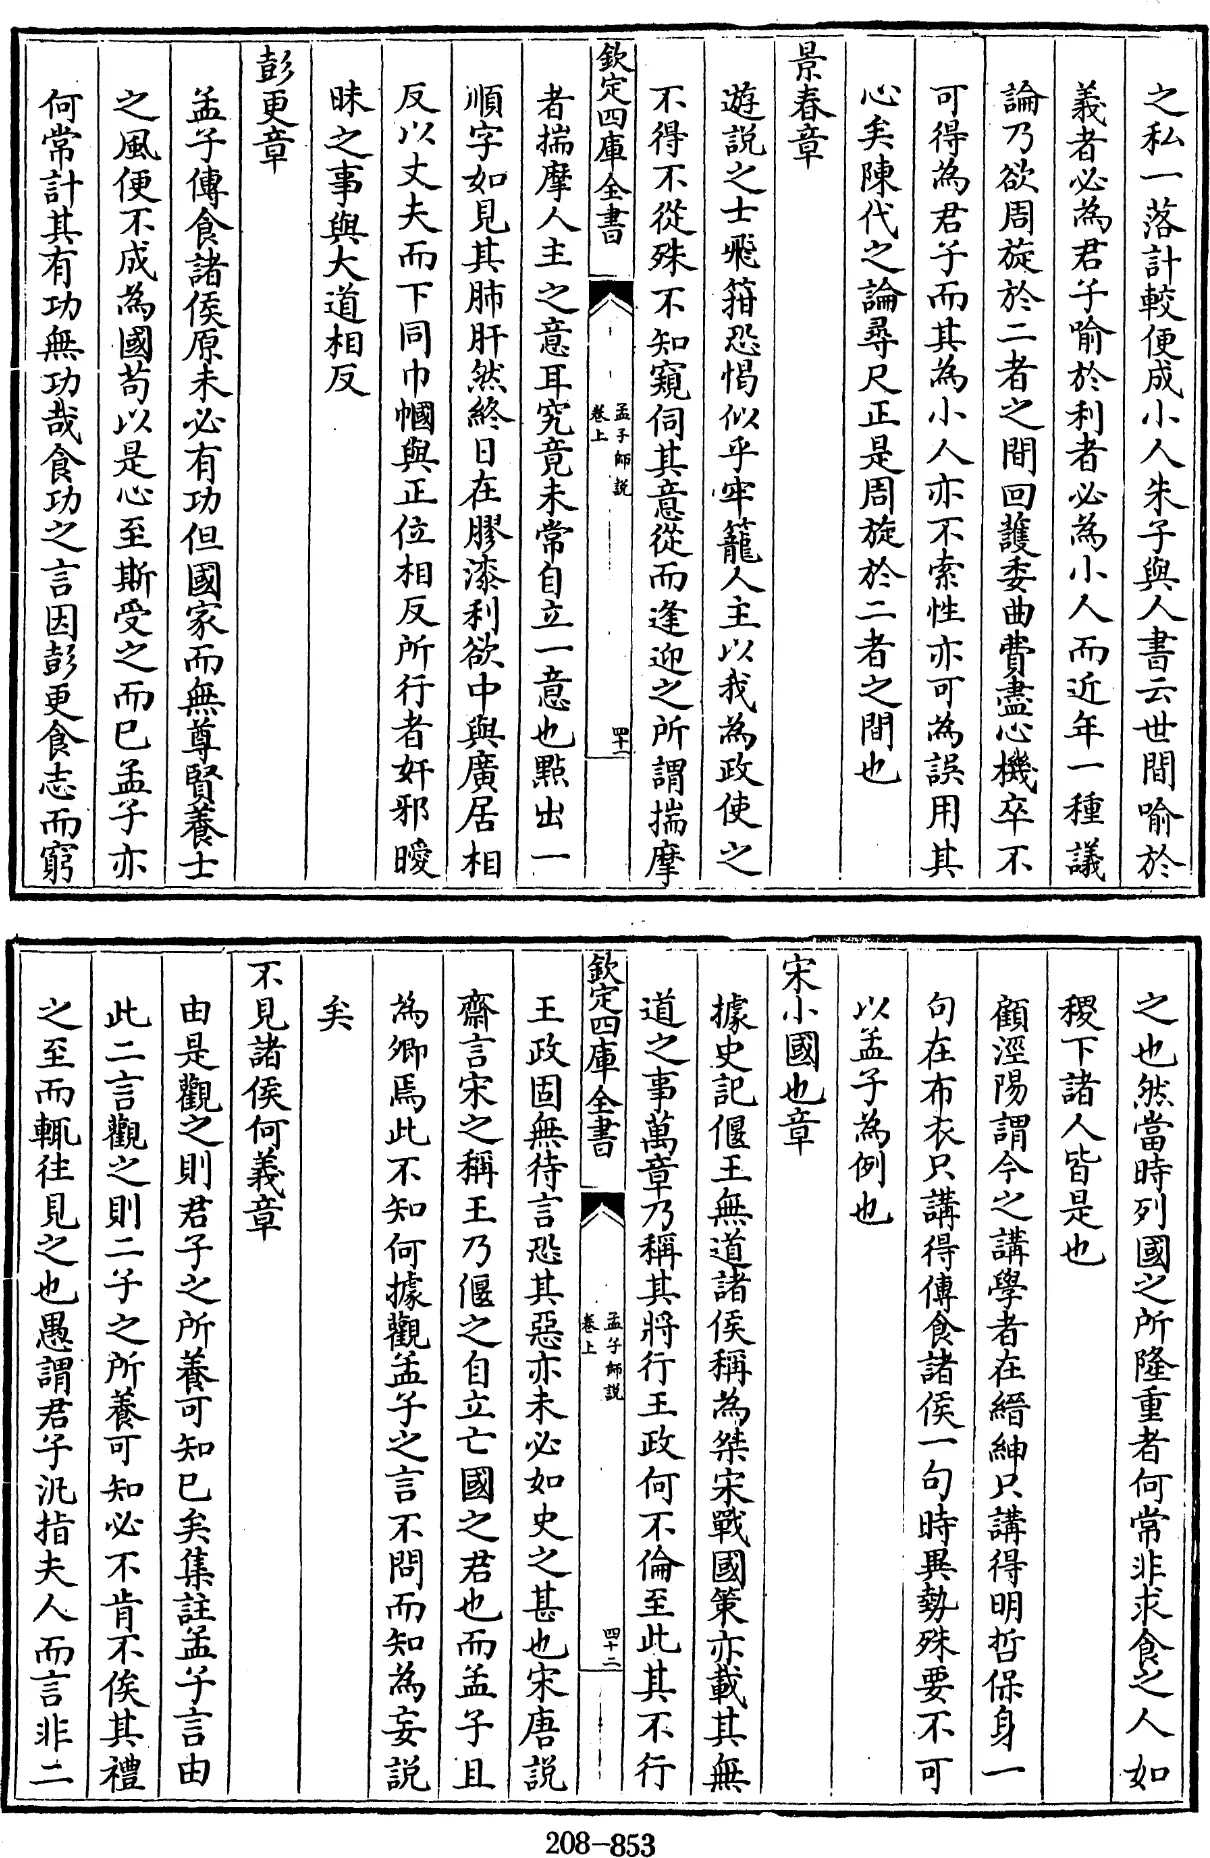 之私一落計較便成小人朱子與人書云世間喻於
義者必為君子喻於利者必為小人而近年一種議
論乃欲周旋於二者之間回護委曲費盡心機卒不
可得為君子而其為小人亦不索性亦可為誤用其
心矣陳代之論尋尺正是周旋於二者之間也
景春章
遊説之士飛箝恐愒似乎牢籠人主以我為政使之
不得不從殊不知窺伺其意從而逢迎之所謂揣摩
欽定四庫全書
孟子師説
卷上
四十一
者揣摩人主之意耳究竟未常自立一意也點出一
順字如見其肺肝然終日在膠漆利欲中與廣居相
反以丈夫而下同巾幗與正位相反所行者奸邪曖
昧之事與大道相反
彭更章
孟子傳食諸侯原未必有功但國家而無尊賢養士
之風便不成為國苟以是心至斯受之而已孟子亦
何常計其有功無功哉食功之言因彭更食志而窮
之也然當時列國之所隆重者何常非求食之人如
稷下諸人皆是也
顧涇陽謂今之講學者在縉紳只講得明哲保身一
句在布衣只講得傳食諸侯一句時異勢殊要不可
以孟子為例也
宋小國也章
據史記偃王無道諸侯稱為桀宋戰國策亦載其無
道之事萬章乃稱其將行王政何不倫至此其不行
欽定四庫全書
孟子師説
卷上
四十二
王政固無待言恐其惡亦未必如史之甚也宋唐説
齋言宋之稱王乃偃之自立亡國之君也而孟子且
為卿焉此不知何據觀孟子之言不問而知為妄説
矣
不見諸侯何義章
由是觀之則君子之所養可知已矣集註孟子言由
此二言觀之則二子之所養可知必不肯不俟其禮
之至而輒往見之也愚謂君子汎指夫人而言非二
208-853